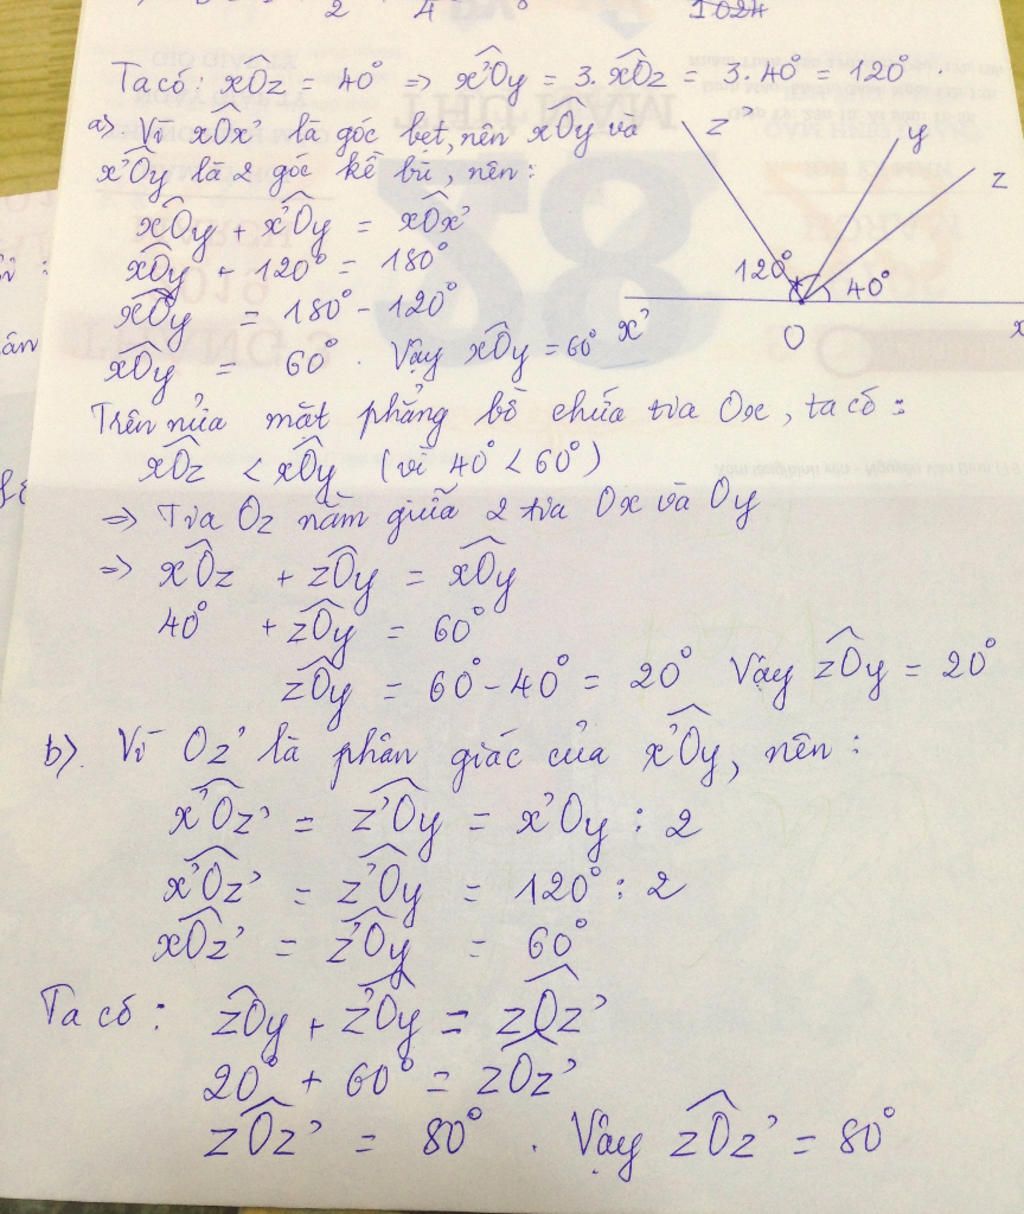 2 4 0 1024
Ta có: xÔz = 40° => x'Ôy = 3. xÔz = 3. 40° = 120° .
a). Vì xÔx' là góc bẹt, nên xÔy và
x'Ôy là 2 góc kề bù, nên:
xÔy + x'Ôy = xÔx'
xÔy + 120° = 180°
xÔy = 180° - 120°
xÔy = 60° . Vậy xÔy = 60°
z'
y
z
120°
40°
x'
O
x
Trên nửa mặt phẳng bờ chứa tia Ox, ta có :
xÔz < xÔy (vì 40° < 60°)
=> Tia Oz nằm giữa 2 tia Ox và Oy
=> xÔz + zÔy = xÔy
40° + zÔy = 60°
zÔy = 60° - 40° = 20° Vậy zÔy = 20°
b). Vì Oz' là phân giác của x'Ôy, nên :
x'Ôz' = z'Ôy = x'Oy : 2
x'Ôz' = z'Ôy = 120° : 2
xÔz' = z'Ôy = 60°
Ta có : zÔy + z'Ôy = zÔz'
20° + 60° = zÔz'
zÔz' = 80° . Vậy zÔz' = 80°